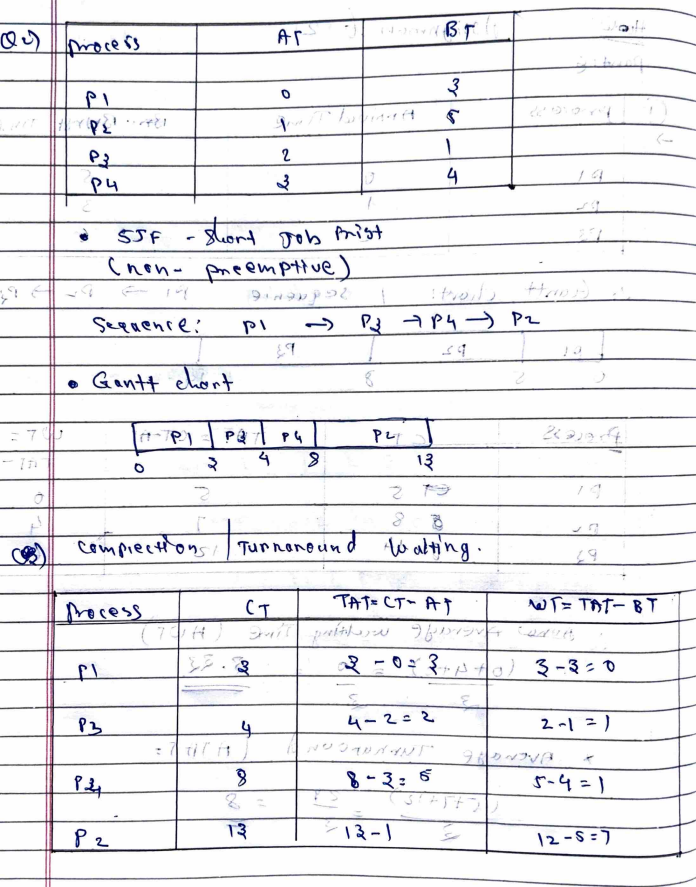 Q2) process AT BT
P1 0 3
P2 1 5
P3 2 1
P4 3 4
• SJF - Short Job Frist
(non-preemptive)
Sequence: P1 → P3 → P4 → P2
• Gantt chart
P1 P3 P4 P2
0 3 4 8 13
Complections | Turnaround Waiting.
Process CT TAT= CT- AT WT= TAT- BT
P1 3 3 - 0 = 3 3 - 3 = 0
P3 4 4 - 2 = 2 2 - 1 = 1
P4 8 8 - 3 = 5 5 - 4 = 1
P2 13 13 - 1 12 - 5 = 7